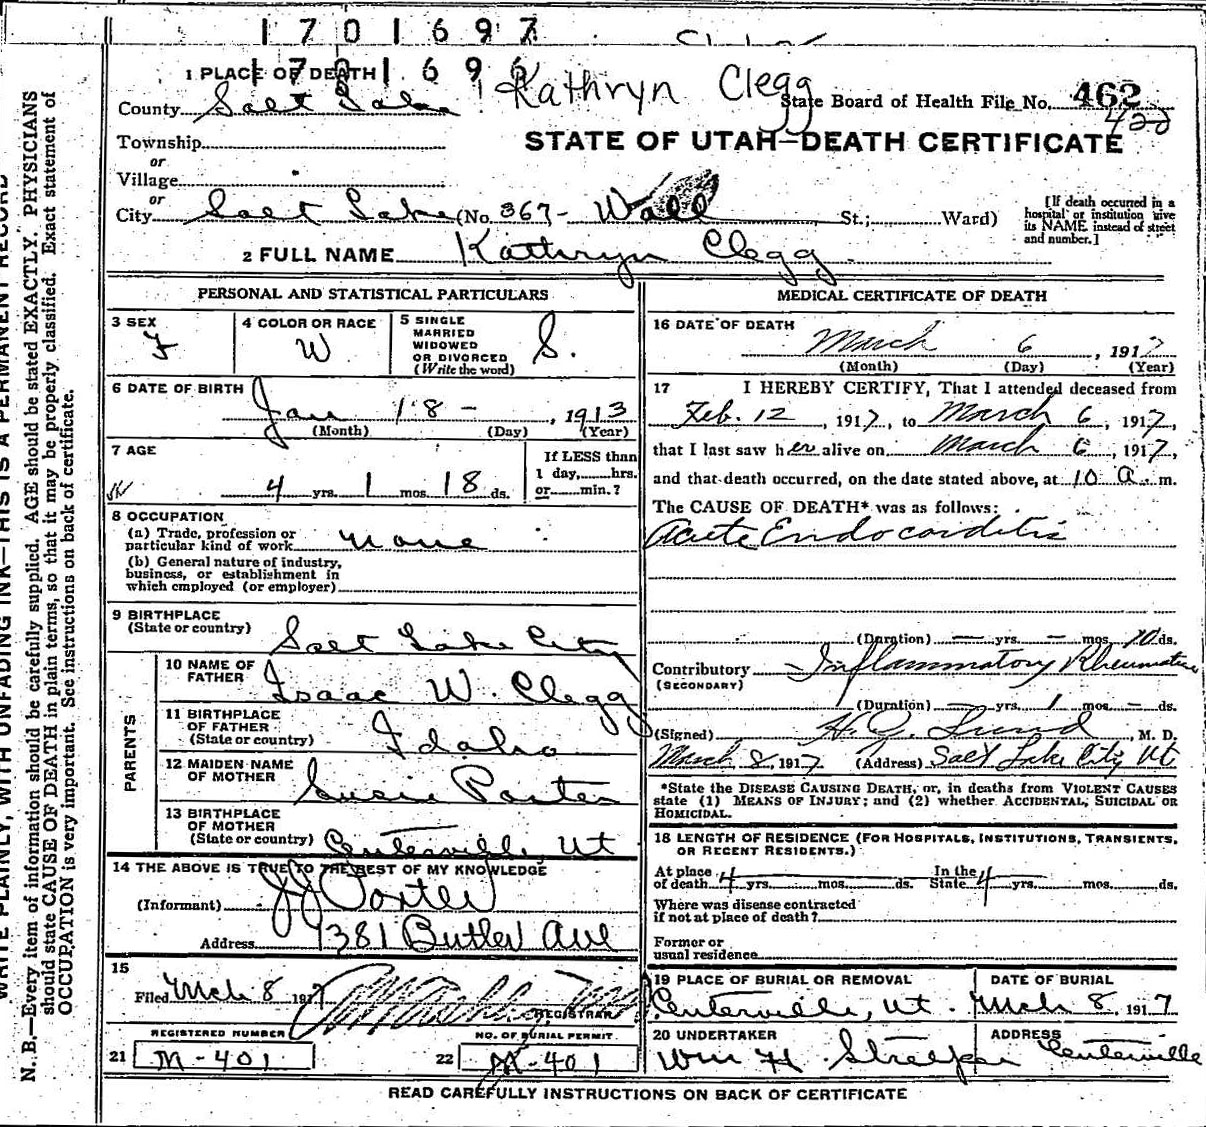 1701697
170 1696
Kathryn Clegg
1 PLACE OF DEATH
County Salt Lake
State Board of Health File No. 462
422
Township
STATE OF UTAH—DEATH CERTIFICATE
or
Village
or
City Salt Lake (No. 367- Wall St.; Ward)
[If death occurred in a hospital or institution give its NAME instead of street and number.]
2 FULL NAME Kathryn Clegg
PERSONAL AND STATISTICAL PARTICULARS
3 SEX F
4 COLOR OR RACE W
5 SINGLE MARRIED WIDOWED OR DIVORCED (Write the word) S.
6 DATE OF BIRTH Jan 18 - , 1913
(Month) (Day) (Year)
7 AGE
4 yrs. 1 mos. 18 ds.
If LESS than 1 day, hrs. or min.?
8 OCCUPATION
(a) Trade, profession or particular kind of work none
(b) General nature of industry, business, or establishment in which employed (or employer)
9 BIRTHPLACE
(State or country) Salt Lake City
PARENTS
10 NAME OF FATHER Isaac W. Clegg
11 BIRTHPLACE OF FATHER (State or country) Idaho
12 MAIDEN NAME OF MOTHER Susie Porter
13 BIRTHPLACE OF MOTHER (State or country) Centerville, Ut
14 THE ABOVE IS TRUE TO THE BEST OF MY KNOWLEDGE
(Informant) JJ Porter
Address 1381 Butler Ave
15
Filed Mch 8 1917
REGISTRAR
REGISTERED NUMBER
NO. OF BURIAL PERMIT
21 M-401
22 M-401
MEDICAL CERTIFICATE OF DEATH
16 DATE OF DEATH
March 6, 1917
(Month) (Day) (Year)
17 I HEREBY CERTIFY, That I attended deceased from
Feb. 12, 1917, to March 6, 1917,
that I last saw her alive on March 6, 1917,
and that death occurred, on the date stated above, at 10 a. m.
The CAUSE OF DEATH* was as follows:
Acute Endocarditis
(Duration) — yrs. — mos. 10 ds.
Contributory Inflammatory Rheumatism
(SECONDARY)
(Duration) — yrs. 1 mos. — ds.
(Signed) H. Q. Lund, M. D.
March 8, 1917 (Address) Salt Lake City Ut
*State the DISEASE CAUSING DEATH, or, in deaths from VIOLENT CAUSES
state (1) MEANS OF INJURY; and (2) whether ACCIDENTAL, SUICIDAL OR
HOMICIDAL.
18 LENGTH OF RESIDENCE (FOR HOSPITALS, INSTITUTIONS, TRANSIENTS,
OR RECENT RESIDENTS.)
At place of death 4 yrs. mos. ds. In the State 4 yrs. mos. ds.
Where was disease contracted
if not at place of death?
Former or
usual residence
19 PLACE OF BURIAL OR REMOVAL
Centerville, Ut.
DATE OF BURIAL
Mch 8 1917
20 UNDERTAKER
Wm H. Streeper
ADDRESS
Centerville
READ CAREFULLY INSTRUCTIONS ON BACK OF CERTIFICATE
WRITE PLAINLY, WITH UNFADING INK—THIS IS A PERMANENT RECORD
N. B.—Every item of information should be carefully supplied. AGE should be stated EXACTLY. PHYSICIANS
should state CAUSE OF DEATH in plain terms, so that it may be properly classified. Exact statement of
OCCUPATION is very important. See instructions on back of certificate.